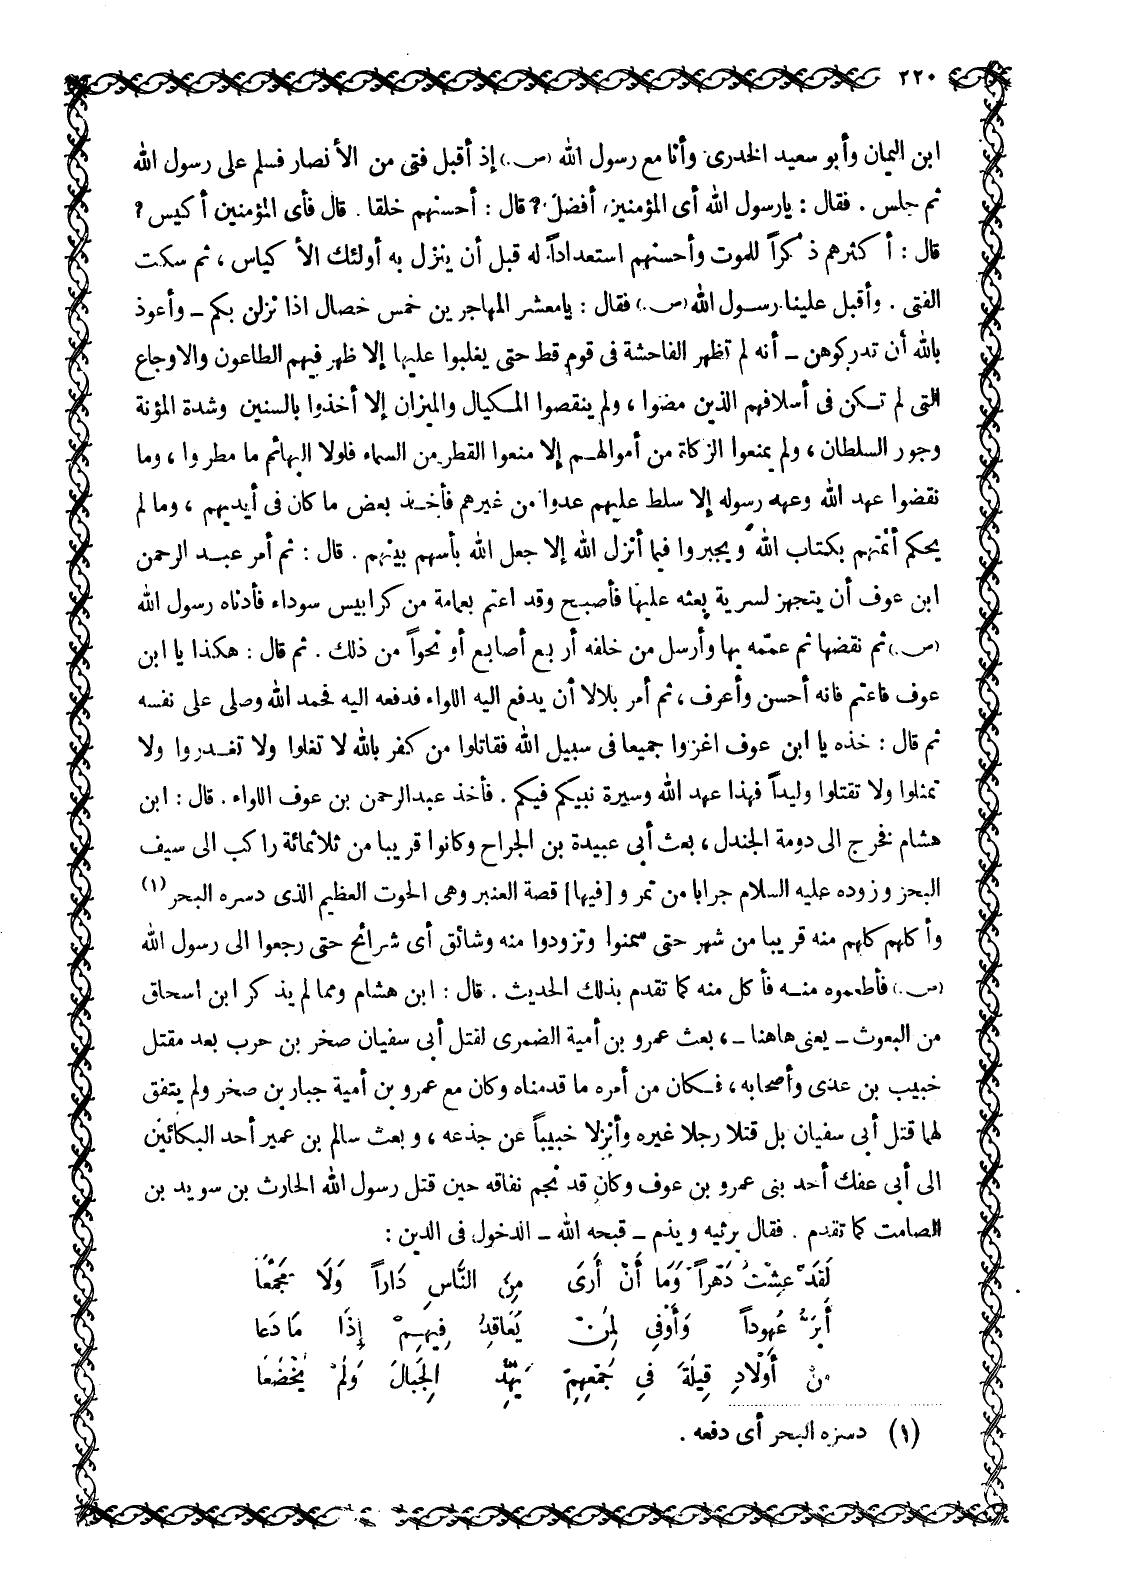 ٢٢٠
ابن اليمان وأبو سعيد الخدرى وأنا مع رسول الله (ص.) إذ أقبل فتى من الأنصار فسلم على رسول الله
ثم جلس . فقال : يارسول الله أى المؤمنين أفضل ? قال : أحسنهم خلقا . قال فأى المؤمنين أكيس ?
قال : أكثرهم ذكراً للموت وأحسنهم استعداداً له قبل أن ينزل به أولئك الأكياس ، ثم سكت
الفتى . وأقبل علينا رسول الله (ص.) فقال : يامعشر المهاجرين خمس خصال اذا نزلن بكم ــ وأعوذ
بالله أن تدركوهن ــ أنه لم تظهر الفاحشة فى قوم قط حتى يغلبوا عليها إلا ظهر فيهم الطاعون والاوجاع
التى لم تكن فى أسلافهم الذين مضوا ، ولم ينقصوا المكيال والميزان إلا أخذوا بالسنين وشدة المؤنة
وجور السلطان ، ولم يمنعوا الزكاة من أموالهم إلا منعوا القطر من السماء فلولا البهائم ما مطروا ، وما
نقضوا عهد الله وعهد رسوله إلا سلط عليهم عدوا من غيرهم فأخذ بعض ما كان فى أيديهم ، وما لم
يحكم أئمتهم بكتاب الله ويجبروا فيما أنزل الله إلا جعل الله بأسهم بينهم . قال : ثم أمر عبد الرحمن
ابن عوف أن يتجهز لسرية بعثه عليها فأصبح وقد اعتم بعمامة من كرابيس سوداء فأدناه رسول الله
(ص.) ثم نقضها ثم عممه بها وأرسل من خلفه أربع أصابع أو نحواً من ذلك . ثم قال : هكذا يا ابن
عوف فاعتم فانه أحسن وأعرف ، ثم أمر بلالا أن يدفع اليه اللواء فدفعه اليه فحمد الله وصلى على نفسه
ثم قال : خذه يا ابن عوف اغزوا جميعا فى سبيل الله فقاتلوا من كفر بالله لا تغلوا ولا تغدروا ولا
تمثلوا ولا تقتلوا وليداً فهذا عهد الله وسيرة نبيكم فيكم . فأخذ عبدالرحمن بن عوف اللواء . قال : ابن
هشام فخرج الى دومة الجندل ، بعث أبى عبيدة بن الجراح وكانوا قريبا من ثلاثمائة راكب الى سيف
البحر وزوده عليه السلام جرابا من تمر و [فيها] قصة العنبر وهى الحوت العظيم الذى دسره البحر (١)
وأكلهم كلهم منه قريبا من شهر حتى سمنوا وتزودوا منه وشائق أى شرائح حتى رجعوا الى رسول الله
(ص.) فأطعموه منه فأكل منه كما تقدم بذلك الحديث . قال : ابن هشام ومما لم يذكر ابن اسحاق
من البعوث ــ يعنى هاهنا ــ ، بعث عمرو بن أمية الضمرى لقتل أبى سفيان صخر بن حرب بعد مقتل
خبيب بن عدى وأصحابه ، فكان من أمره ما قدمناه وكان مع عمرو بن أمية جبار بن صخر ولم يتفق
لهما قتل أبى سفيان بل قتلا رجلا غيره وأنزلا خبيباً عن جذعه ، وبعث سالم بن عمير أحد البكائين
الى أبى عفك أحد بنى عمرو بن عوف وكان قد نجم نفاقه حين قتل رسول الله الحارث بن سويد بن
الصامت كما تقدم . فقال يرثيه ويذم ــ قبحه الله ــ الدخول فى الدين :
لَقَدْ عِشْتُ دَهْراً وَمَا أَنْ أَرَى مِنَ النَّاسِ دَاراً وَلَا مَجْمَعًا
أَبَرَّ عُهُوداً وَأَوْفِى لِمَنْ يُعَاقِدُ فِيهِمْ إِذَا مَا دَعَا
مِنْ أَوْلَادِ قِيلَةَ فِي جَمْعِهِمْ يَهُدُّ الْجِبَالَ وَلَمْ يَخْضَعَا
(١) دسره البحر أى دفعه .